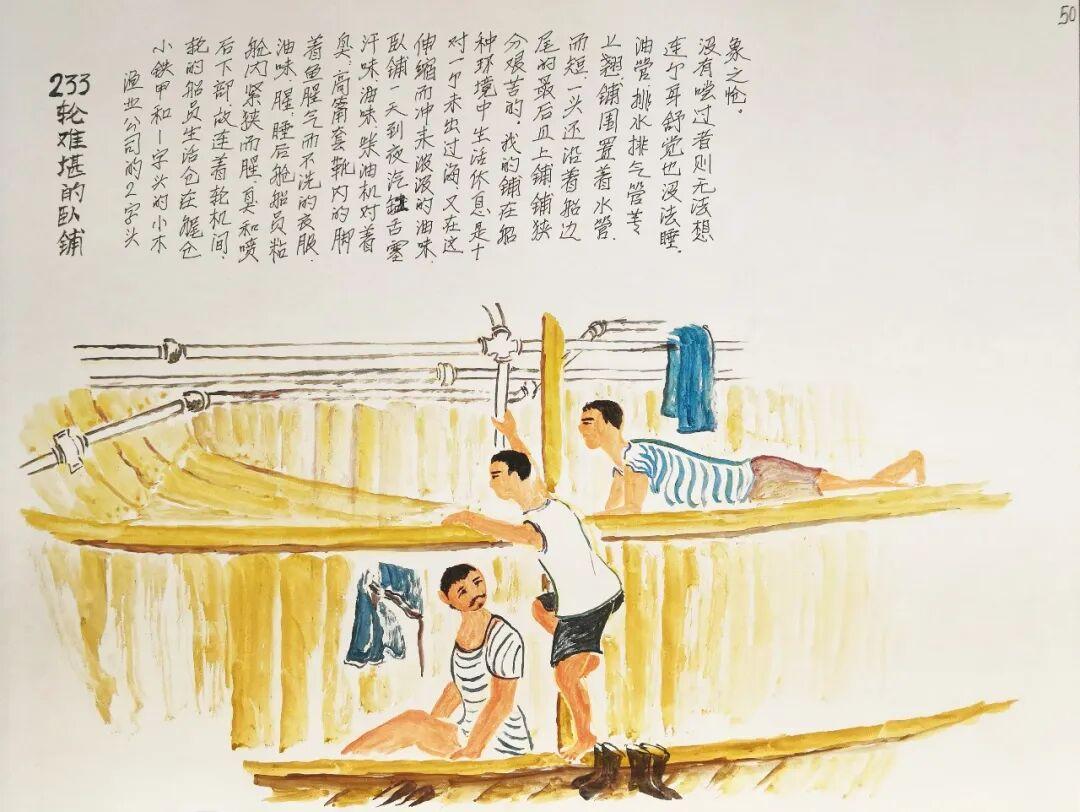 50
233轮难堪的卧铺
渔业公司的2字头
小鉄甲和1字头的小木
轮的船员生活仓在艉仓
后下部,故连着轮机间,
舱内紧狭而腥,臭和喷
油味,腥,睡后舱船员粘
着鱼腥气而不洗的衣服,
臭,高筩套靴内的脚
汗味油味柴油机对着
卧铺一天到夜汽缸舌塞
伸缩而冲来滚滚的油味,
对一个未出过海,又在这
种环境中生活休息是十
分艰苦的,我的铺在船
尾的最后且上铺,铺狭
而短,一头还沿着船边
上翘,铺围置着水管,
油管,排水排气管等
连个耳舒觉也没法睡,
没有嚐过者则无法想
象之怆.